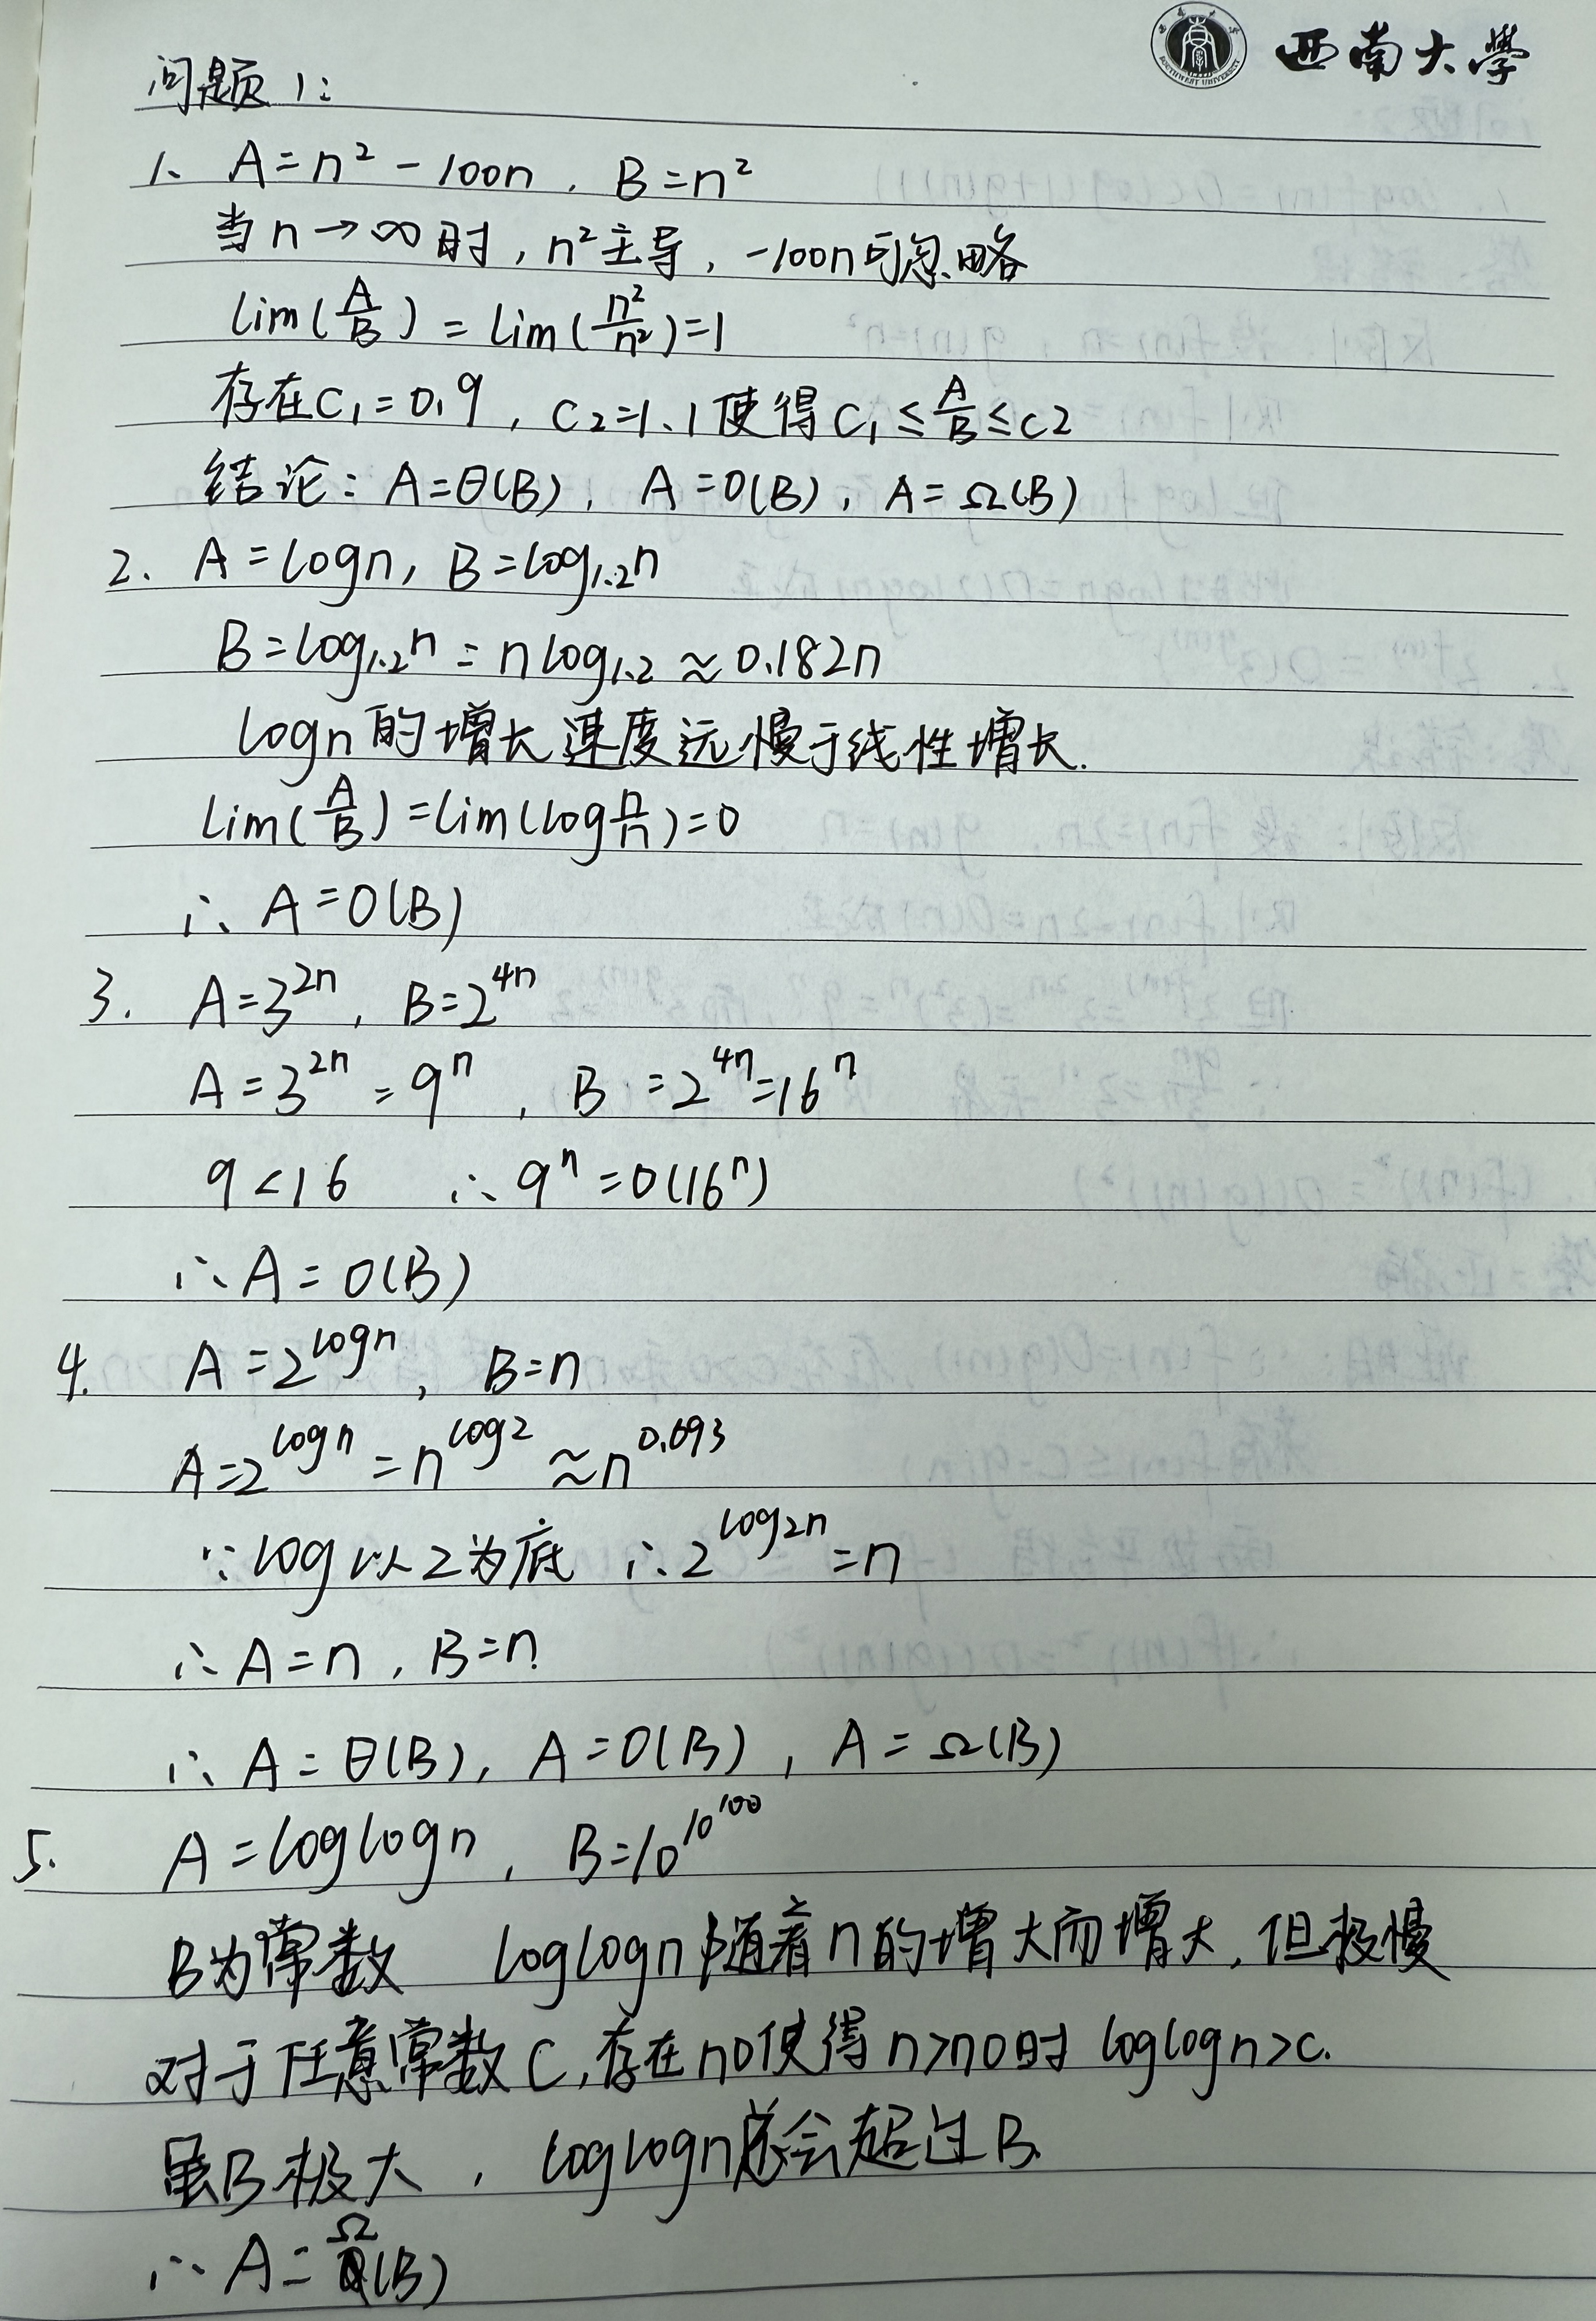 西南大学
SOUTHWEST UNIVERSITY
问题1:
1、A=n² -100n , B=n²
当n→∞时,n²主导,-100n可忽略
lim(A/B) = lim(n²/n²)=1
存在C₁=0.9,C2=1.1使得C₁≤A/B≤C2
结论:A=θ(B), A=O(B), A=Ω(B)
2. A=logn, B=log₁.₂n
B=log₁.₂n = nlog₁.₂≈0.182n
logn的增长速度远慢于线性增长.
lim(A/B)=lim(log n/n)=0
∴ A=O(B)
3. A=3²ⁿ, B=2⁴ⁿ
A=3²ⁿ=9ⁿ , B=2⁴ⁿ=16ⁿ
9<16 ∴9ⁿ=O(16ⁿ)
∴A=O(B)
4. A=2^logn, B=n
A=2^logn = n^log2 ≈n^0.693
∵log以2为底 ∴2^log₂n=n
∴A=n, B=n
∴A=θ(B), A=O(B), A=Ω(B)
5. A=loglogn, B=10^10^100
B为常数 loglogn随着n的增大而增大,但极慢
对于任意常数C,存在n0使得n>n0时 loglogn>c.
虽B极大 , loglogn总会超过B.
∴A=Ω(B)